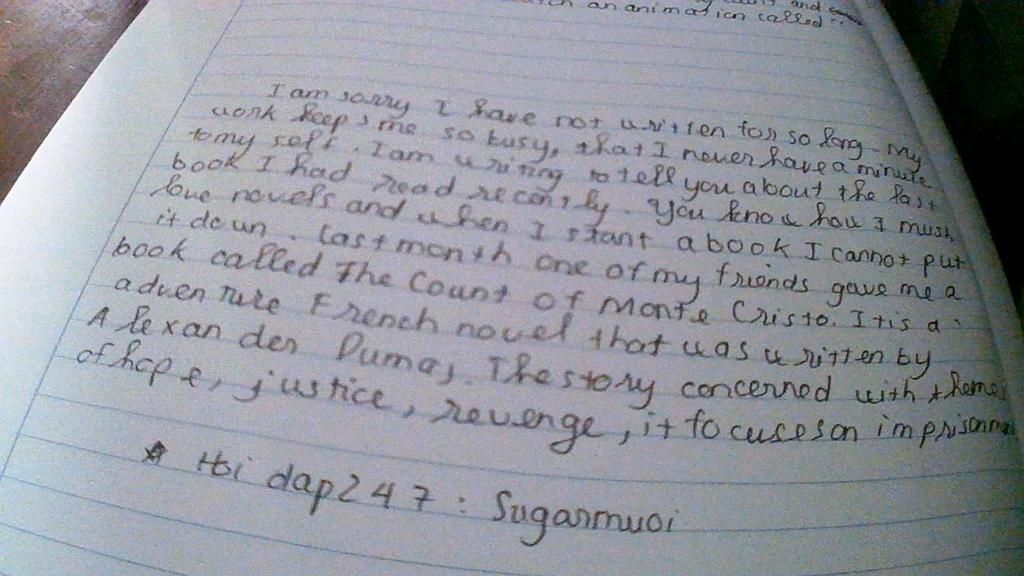 and
an animation called :
I am sorry I have not written for so long - My
work keeps me so busy, that I never have a minute
to my self. I am writing to tell you about the last
book I had read recently. You know how I much
love novels and when I start a book I cannot put
it down. last month one of my friends gave me a
book called The Count of Monte Cristo. It is a
adventure French novel that was written by
Alexander Dumas. The story concerned with theme
of hope, justice, revenge, it focuses on imprisonment
* Hoi dap247 : Sugarmuoi